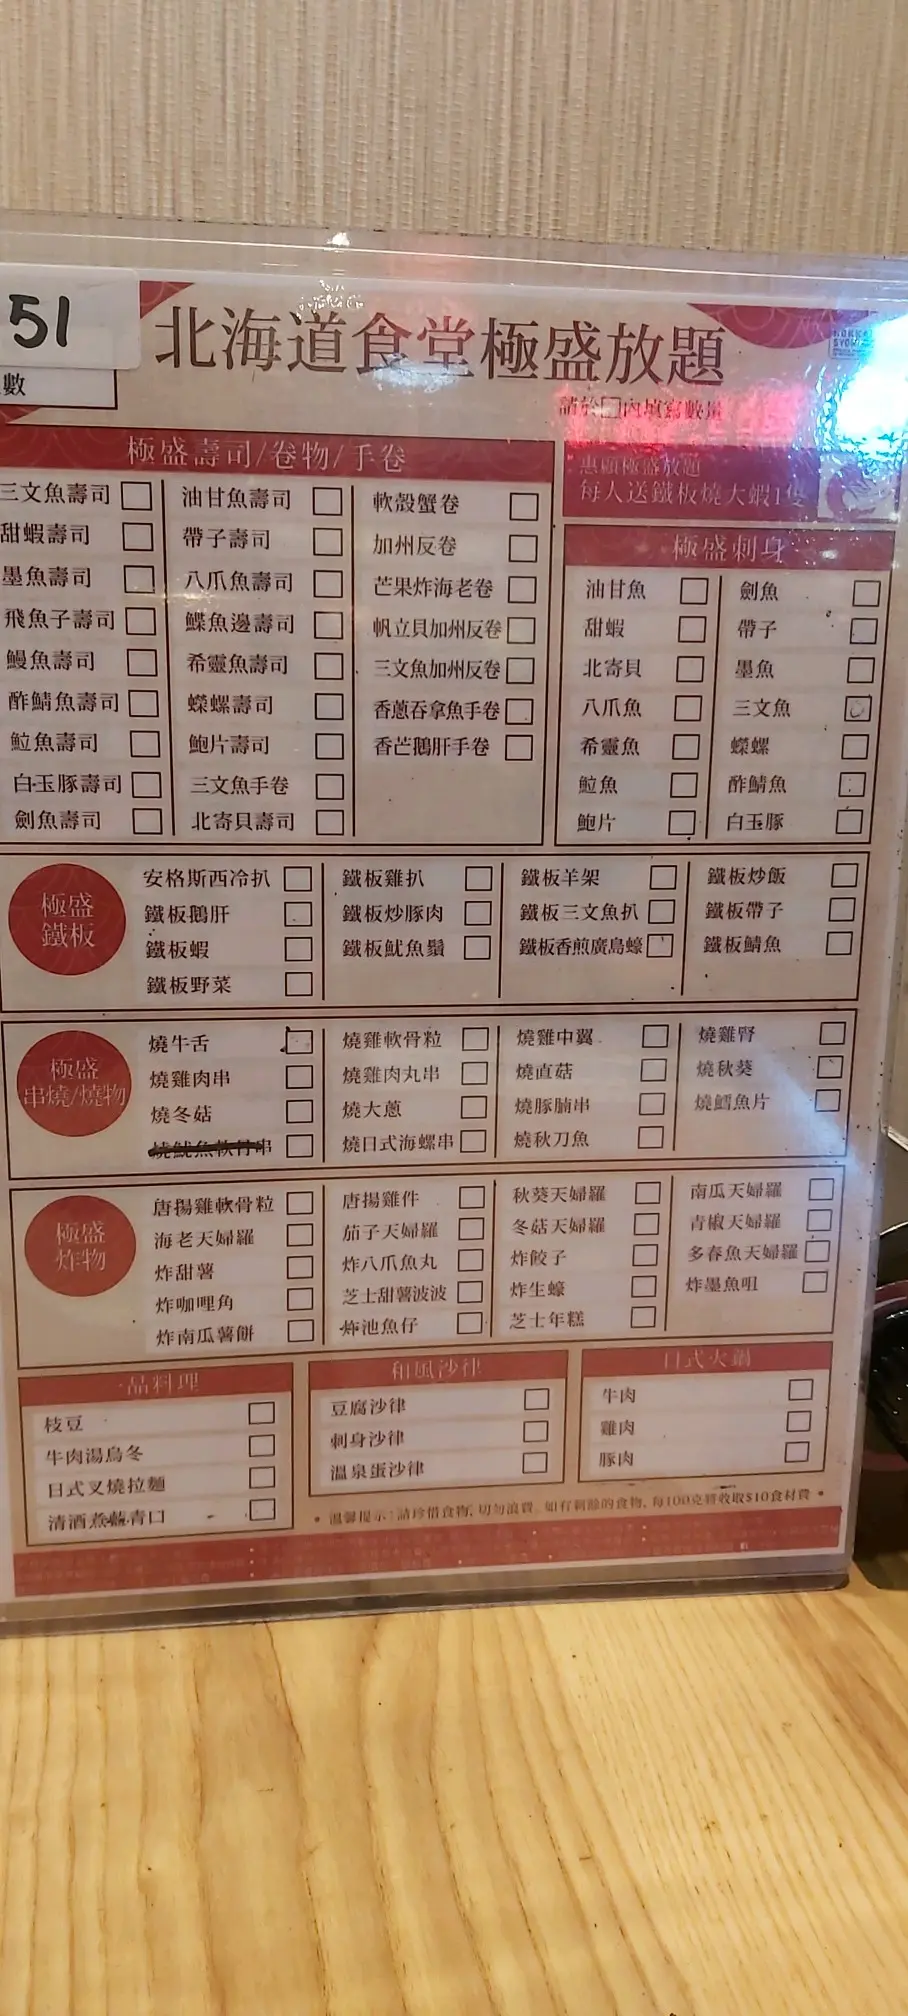 51
數
北海道食堂極盛放題
請於□內填寫數量
極盛壽司/卷物/手卷
三文魚壽司
甜蝦壽司
墨魚壽司
飛魚子壽司
鰻魚壽司
醡鯖魚壽司
鯳魚壽司
白玉豚壽司
劍魚壽司
油甘魚壽司
帶子壽司
八爪魚壽司
鰈魚邊壽司
希靈魚壽司
蠑螺壽司
鮑片壽司
三文魚手卷
北寄貝壽司
軟殼蟹卷
加州反卷
芒果炸海老卷
帆立貝加州反卷
三文魚加州反卷
香蔥吞拿魚手卷
香芒鵝肝手卷
惠顧極盛放題
每人送鐵板燒大蝦1隻
極盛刺身
油甘魚
甜蝦
北寄貝
八爪魚
希靈魚
鯳魚
鮑片
劍魚
帶子
墨魚
三文魚
蠑螺
醡鯖魚
白玉豚
極盛
鐵板
安格斯西冷扒
鐵板鵝肝
鐵板蝦
鐵板野菜
鐵板雞扒
鐵板炒豚肉
鐵板魷魚鬚
鐵板羊架
鐵板三文魚扒
鐵板香煎廣島蠔
鐵板炒飯
鐵板帶子
鐵板鯖魚
極盛
串燒/燒物
燒牛舌
燒雞肉串
燒冬菇
燒魷魚軟骨串
燒雞軟骨粒
燒雞肉丸串
燒大蔥
燒日式海螺串
燒雞中翼
燒直菇
燒豚腩串
燒秋刀魚
燒雞腎
燒秋葵
燒鱈魚片
極盛
炸物
唐揚雞軟骨粒
海老天婦羅
炸甜薯
炸咖哩角
炸南瓜薯餅
唐揚雞件
茄子天婦羅
炸八爪魚丸
芝士甜薯波波
炸池魚仔
秋葵天婦羅
冬菇天婦羅
炸餃子
炸生蠔
芝士年糕
南瓜天婦羅
青椒天婦羅
多春魚天婦羅
炸墨魚咀
一品料理
枝豆
牛肉湯烏冬
日式叉燒拉麵
清酒煮蜆青口
和風沙律
豆腐沙律
刺身沙律
溫泉蛋沙律
日式火鍋
牛肉
雞肉
豚肉
• 溫馨提示：請珍惜食物, 切勿浪費。如有剩餘的食物, 每100克將收取$10食材費 •